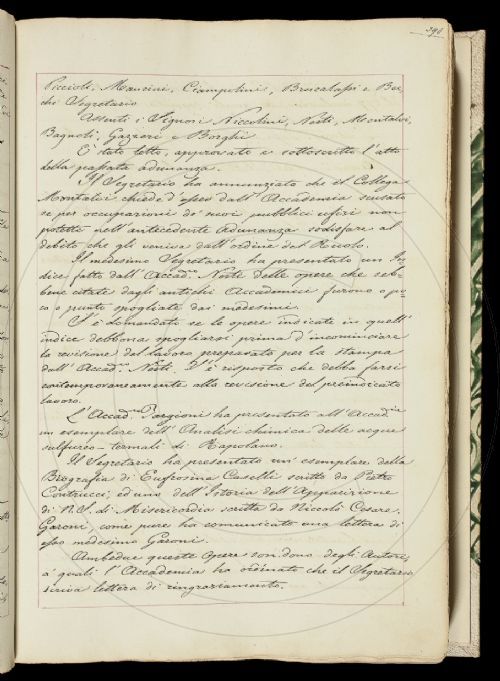 390
Piccioli, Manzini, Ciampolini, Brucalassi e Bec-
chi Segretario
Assenti i Signori Niccolini, Nesti, Montalvi,
Bagnoli, Gazzeri e Borghi
E' stato letto, approvato e sottoscritto l'atto
della passata adunanza.
Il Segretario ha annunziato che il Collega
Montalvi chiede d'esser dall'Accademia scusato
se per occupazioni de' suoi pubblici uficj non
potette nell'antecedente Adunanza sodisfare al
debito che gli veniva dall'ordine del Ruolo.
Il medesimo Segretario ha presentato un In-
dice fatto dall'Accad.co Nesti delle opere che seb-
bene citate dagli antichi Accademici furono o po-
co o punto spogliate dai medesimi.
S'è domandato se le opere indicate in quell'
indice debbono spogliarsi prima d'incominciare
la revisione del lavoro preparato per la stampa
dall'Accad.co Nesti. S'è risposto che debba farsi
contemporaneamente alla revisione del preindicato
lavoro.
L'Accad.co Targioni ha presentato all'Accad.ia
un esemplare dell'Analisi chimica delle acque
sulfureo-termali di Rapolano.
Il Segretario ha presentato un'esemplare della
Biografia di Eufrosina Caselli scritta da Pietro
Contrucci, ed uno dell'Istoria dell'Apparizione
di N.S. di Misericordia scritta da Niccolò Cesare
Garoni, come pure ha comunicato una lettera di
esso medesimo Garoni.
Ambedue queste Opere son dono degli Autori,
a' quali l'Accademia ha ordinato che il Segretario
scriva lettera di ringraziamento.